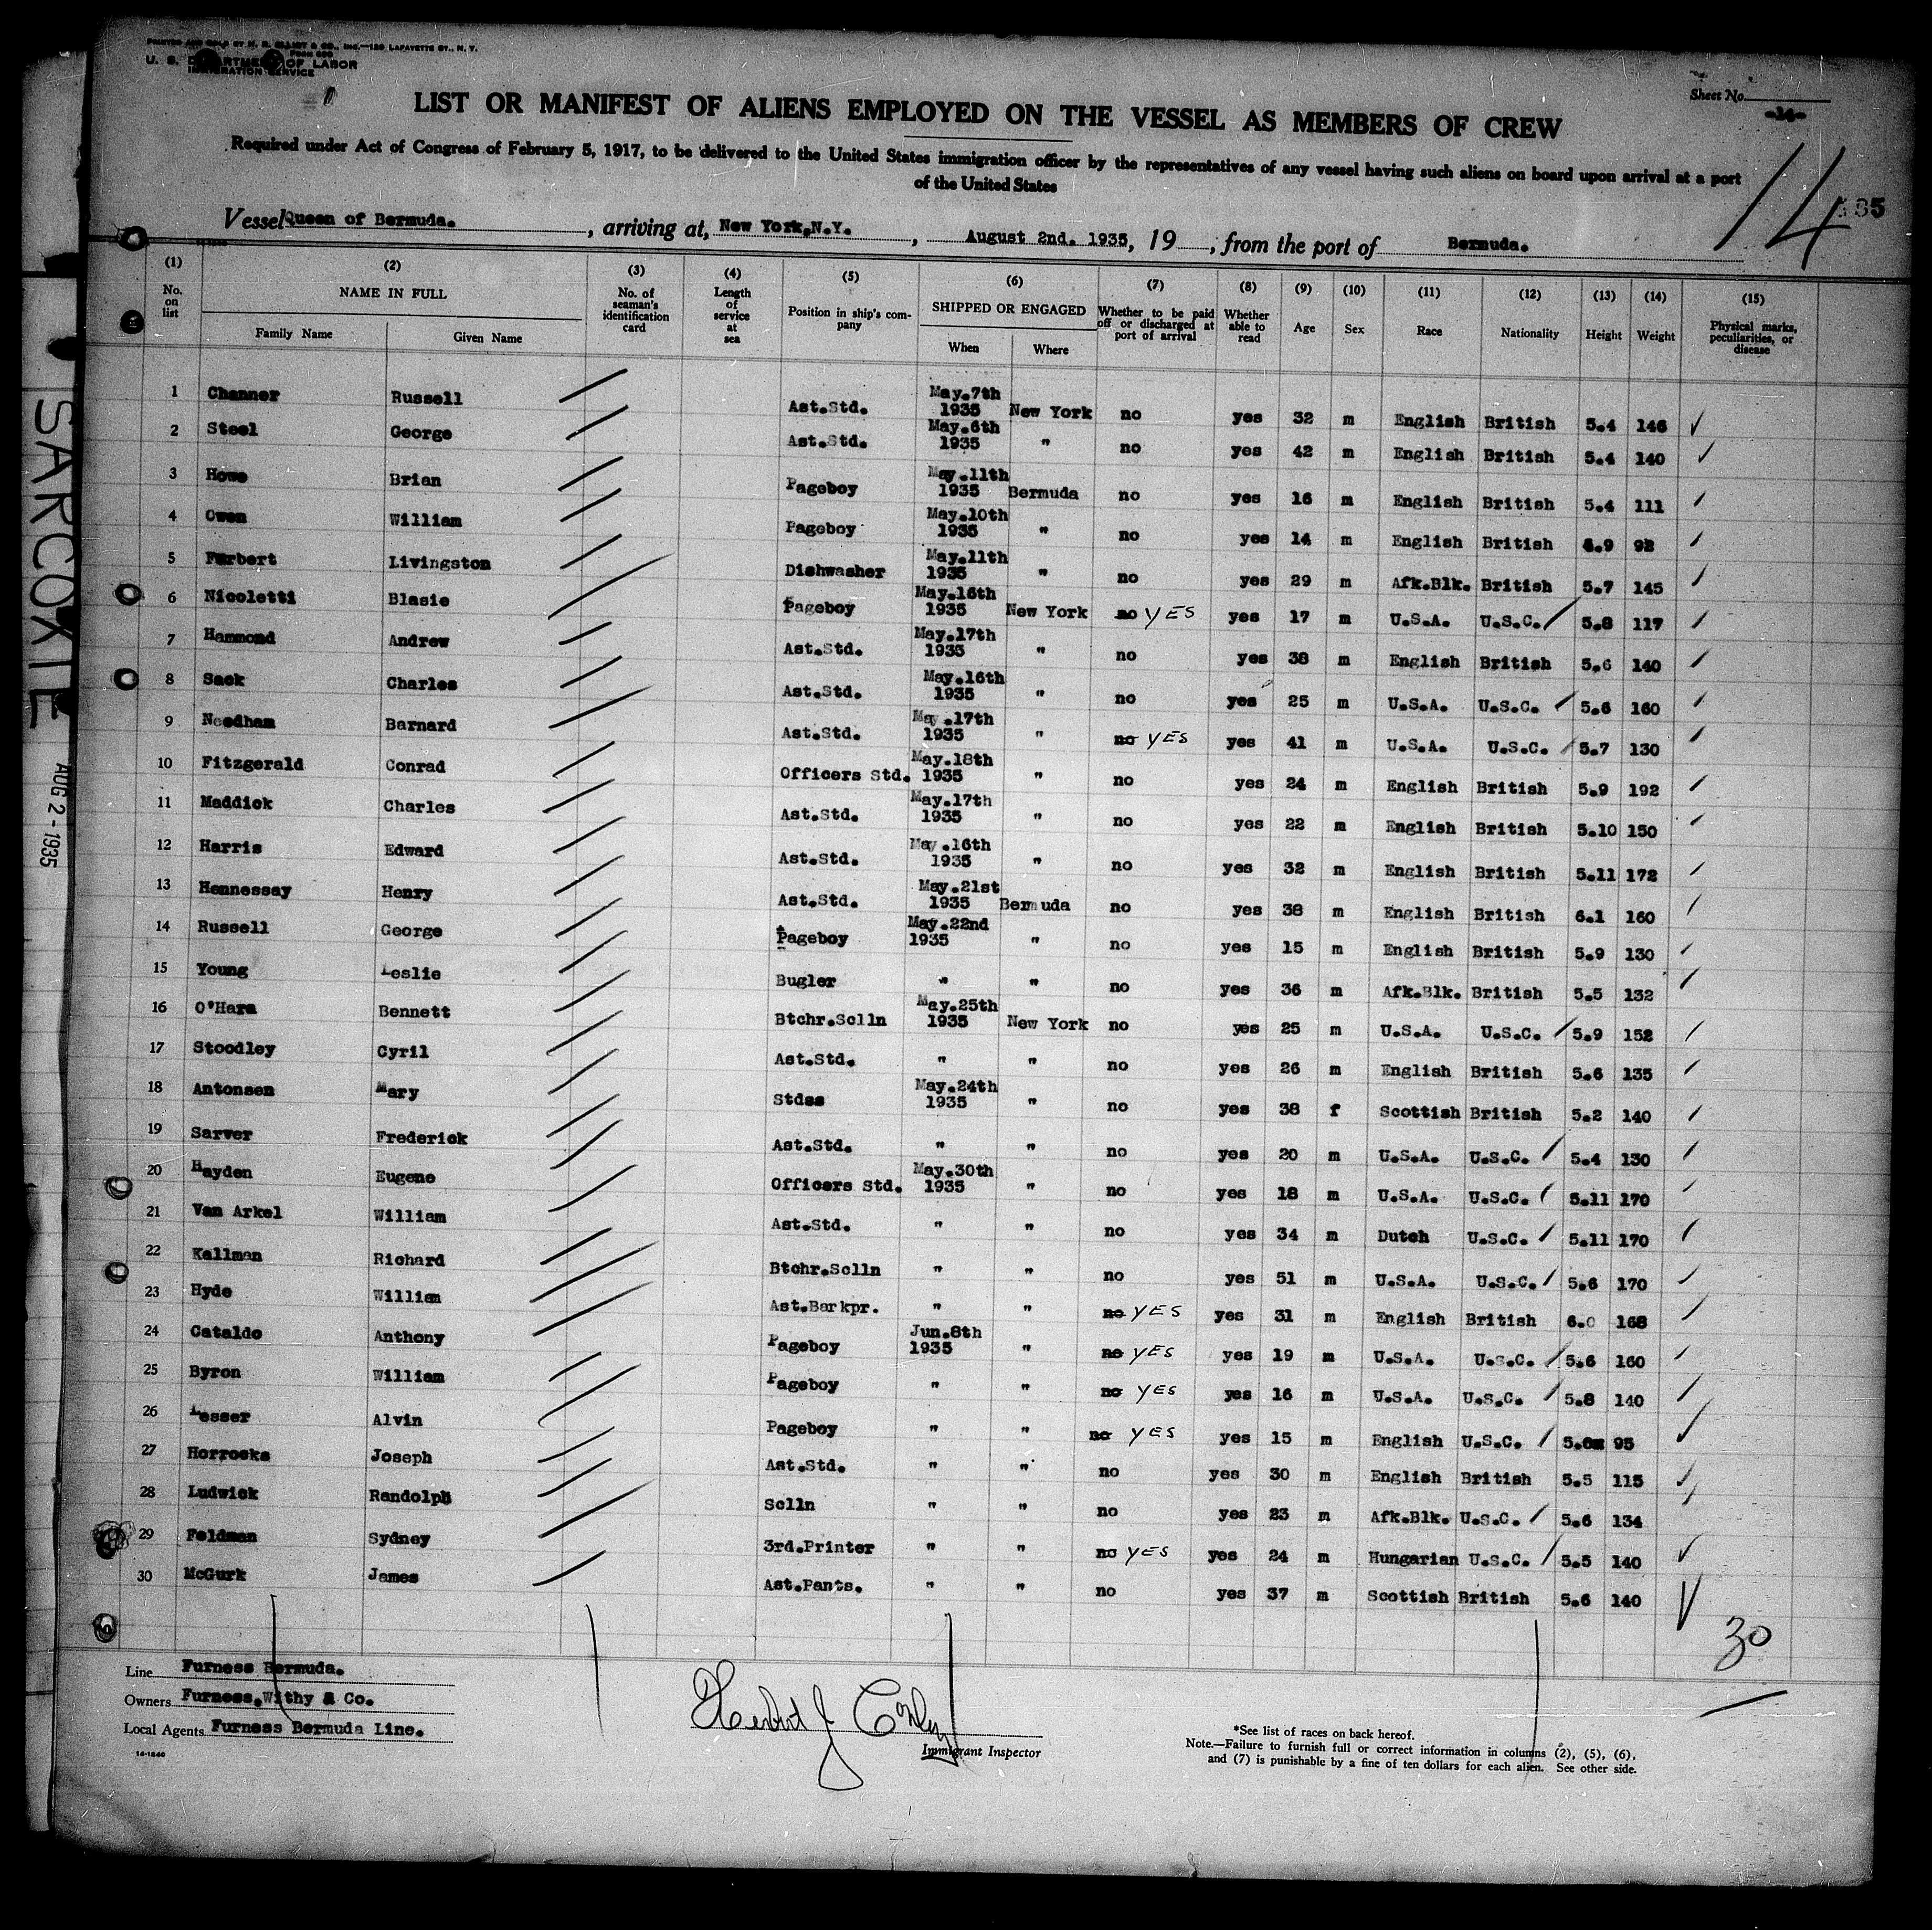 PRINTED AND SOLD BY M. B. ELLIOT & CO., Inc.—129 LAFAYETTE ST., N. Y.
Form 680
U. S. DEPARTMENT OF LABOR
IMMIGRATION SERVICE
Sheet No.
-14-
LIST OR MANIFEST OF ALIENS EMPLOYED ON THE VESSEL AS MEMBERS OF CREW
Required under Act of Congress of February 5, 1917, to be delivered to the United States immigration officer by the representatives of any vessel having such aliens on board upon arrival at a port
of the United States
14
Vessel Queen of Bermuda. , arriving at, New York,N.Y. , August 2nd. 1935, 19 , from the port of Bermuda.
(1) (2) (3) (4) (5) (6) (7) (8) (9) (10) (11) (12) (13) (14) (15)
No. on list NAME IN FULL Family Name Given Name No. of seaman's identification card Length of service at sea Position in ship's company SHIPPED OR ENGAGED When Where Whether to be paid off or discharged at port of arrival Whether able to read Age Sex Race Nationality Height Weight Physical marks, peculiarities, or disease
1 Channer Russell Ast.Std. May.7th 1935 New York no yes 32 m English British 5.4 146
2 Steel George Ast.Std. May.6th 1935 " no yes 42 m English British 5.4 140
3 Howe Brian Pageboy May.11th 1935 Bermuda no yes 16 m English British 5.4 111
4 Owen William Pageboy May.10th 1935 " no yes 14 m English British 4.9 92
5 Furbert Livingston Dishwasher May.11th 1935 " no yes 29 m Afk.Blk. British 5.7 145
6 Nicoletti Blasie Pageboy May.16th 1935 New York no YES yes 17 m U.S.A. U.S.C. 5.8 117
7 Hammond Andrew Ast.Std. May.17th 1935 " no yes 38 m English British 5.6 140
8 Sack Charles Ast.Std. May.16th 1935 " no yes 25 m U.S.A. U.S.C. 5.6 160
9 Needham Barnard Ast.Std. May.17th 1935 " no YES yes 41 m U.S.A. U.S.C. 5.7 130
10 Fitzgerald Conrad Officers Std. May.18th 1935 " no yes 24 m English British 5.9 192
11 Maddick Charles Ast.Std. May.17th 1935 " no yes 22 m English British 5.10 150
12 Harris Edward Ast.Std. May.16th 1935 " no yes 32 m English British 5.11 172
13 Hennessay Henry Ast.Std. May.21st 1935 Bermuda no yes 38 m English British 6.1 160
14 Russell George Pageboy May.22nd 1935 " no yes 15 m English British 5.9 130
15 Young Leslie Bugler " " no yes 36 m Afk.Blk. British 5.5 132
16 O'Hara Bennett Btchr.Sclln May.25th 1935 New York no yes 25 m U.S.A. U.S.C. 5.9 152
17 Stoodley Cyril Ast.Std. " " no yes 26 m English British 5.6 135
18 Antonsen Mary Stdss May.24th 1935 " no yes 38 f Scottish British 5.2 140
19 Sarver Frederick Ast.Std. " " no yes 20 m U.S.A. U.S.C. 5.4 130
20 Hayden Eugene Officers Std. May.30th 1935 " no yes 18 m U.S.A. U.S.C. 5.11 170
21 Van Arkel William Ast.Std. " " no yes 34 m Dutch U.S.C. 5.11 170
22 Kallman Richard Btchr.Sclln " " no yes 51 m U.S.A. U.S.C. 5.6 170
23 Hyde William Ast.Barkpr. " " no YES yes 31 m English British 6.0 168
24 Cataldo Anthony Pageboy Jun.8th 1935 " no YES yes 19 m U.S.A. U.S.C. 5.6 160
25 Byron William Pageboy " " no YES yes 16 m U.S.A. U.S.C. 5.8 140
26 Lesser Alvin Pageboy " " no YES yes 15 m English U.S.C. 95
27 Horrocks Joseph Ast.Std. " " no yes 30 m English British 5.5 115
28 Ludwick Randolph Sclln " " no yes 23 m Afk.Blk. U.S.C. 5.6 134
29 Feldman Sydney 3rd.Printer " " no YES yes 24 m Hungarian U.S.C. 5.5 140
30 McGurk James Ast.Pants. " " no yes 37 m Scottish British 5.6 140
30
Line Furness Bermuda.
Owners Furness,Withy & Co.
Local Agents Furness Bermuda Line.
14-1240
Immigrant Inspector
*See list of races on back hereof.
Note.—Failure to furnish full or correct information in columns (2), (5), (6),
and (7) is punishable by a fine of ten dollars for each alien. See other side.
SARCOXIE
AUG 2 - 1935